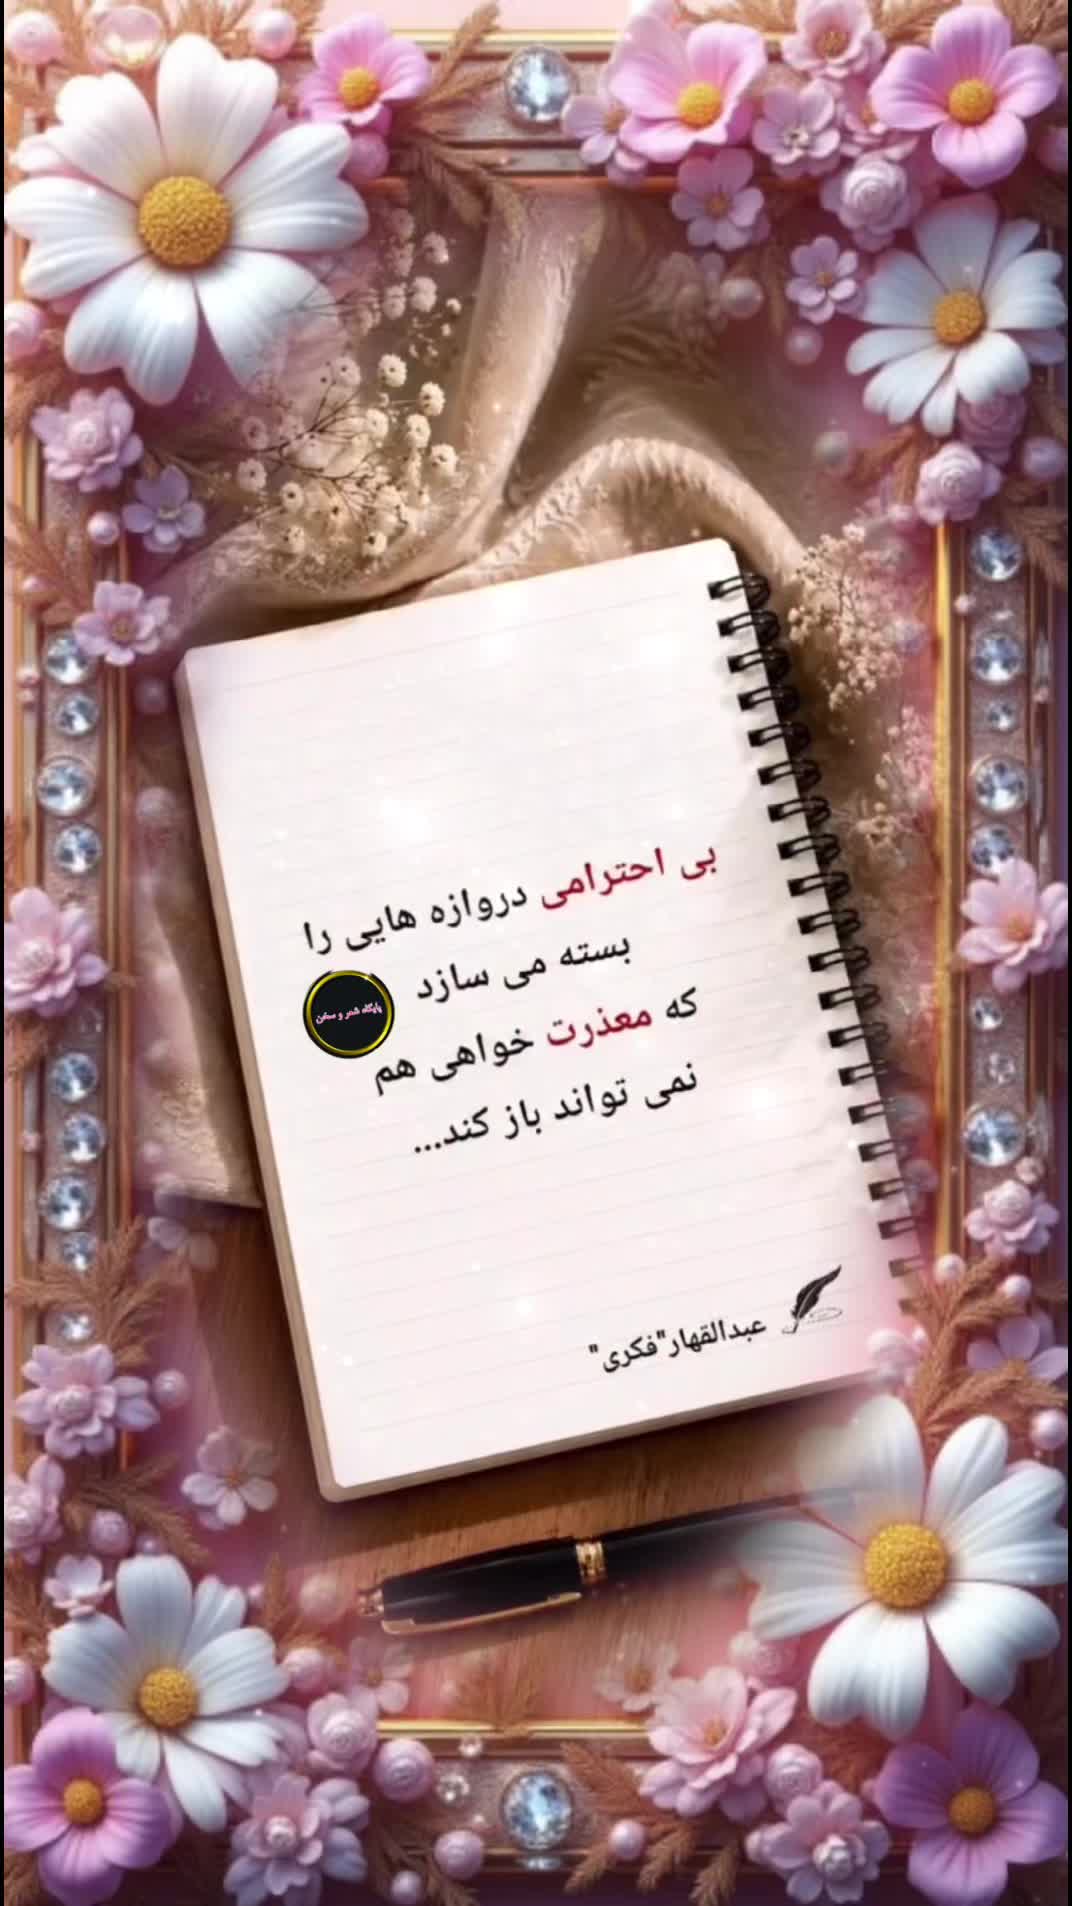 بی احترامی دروازه هایی را
بسته می سازد
که معذرت خواهی هم
نمی تواند باز کند...
پایگاه شعر و سخن
عبدالقهار"فکری"